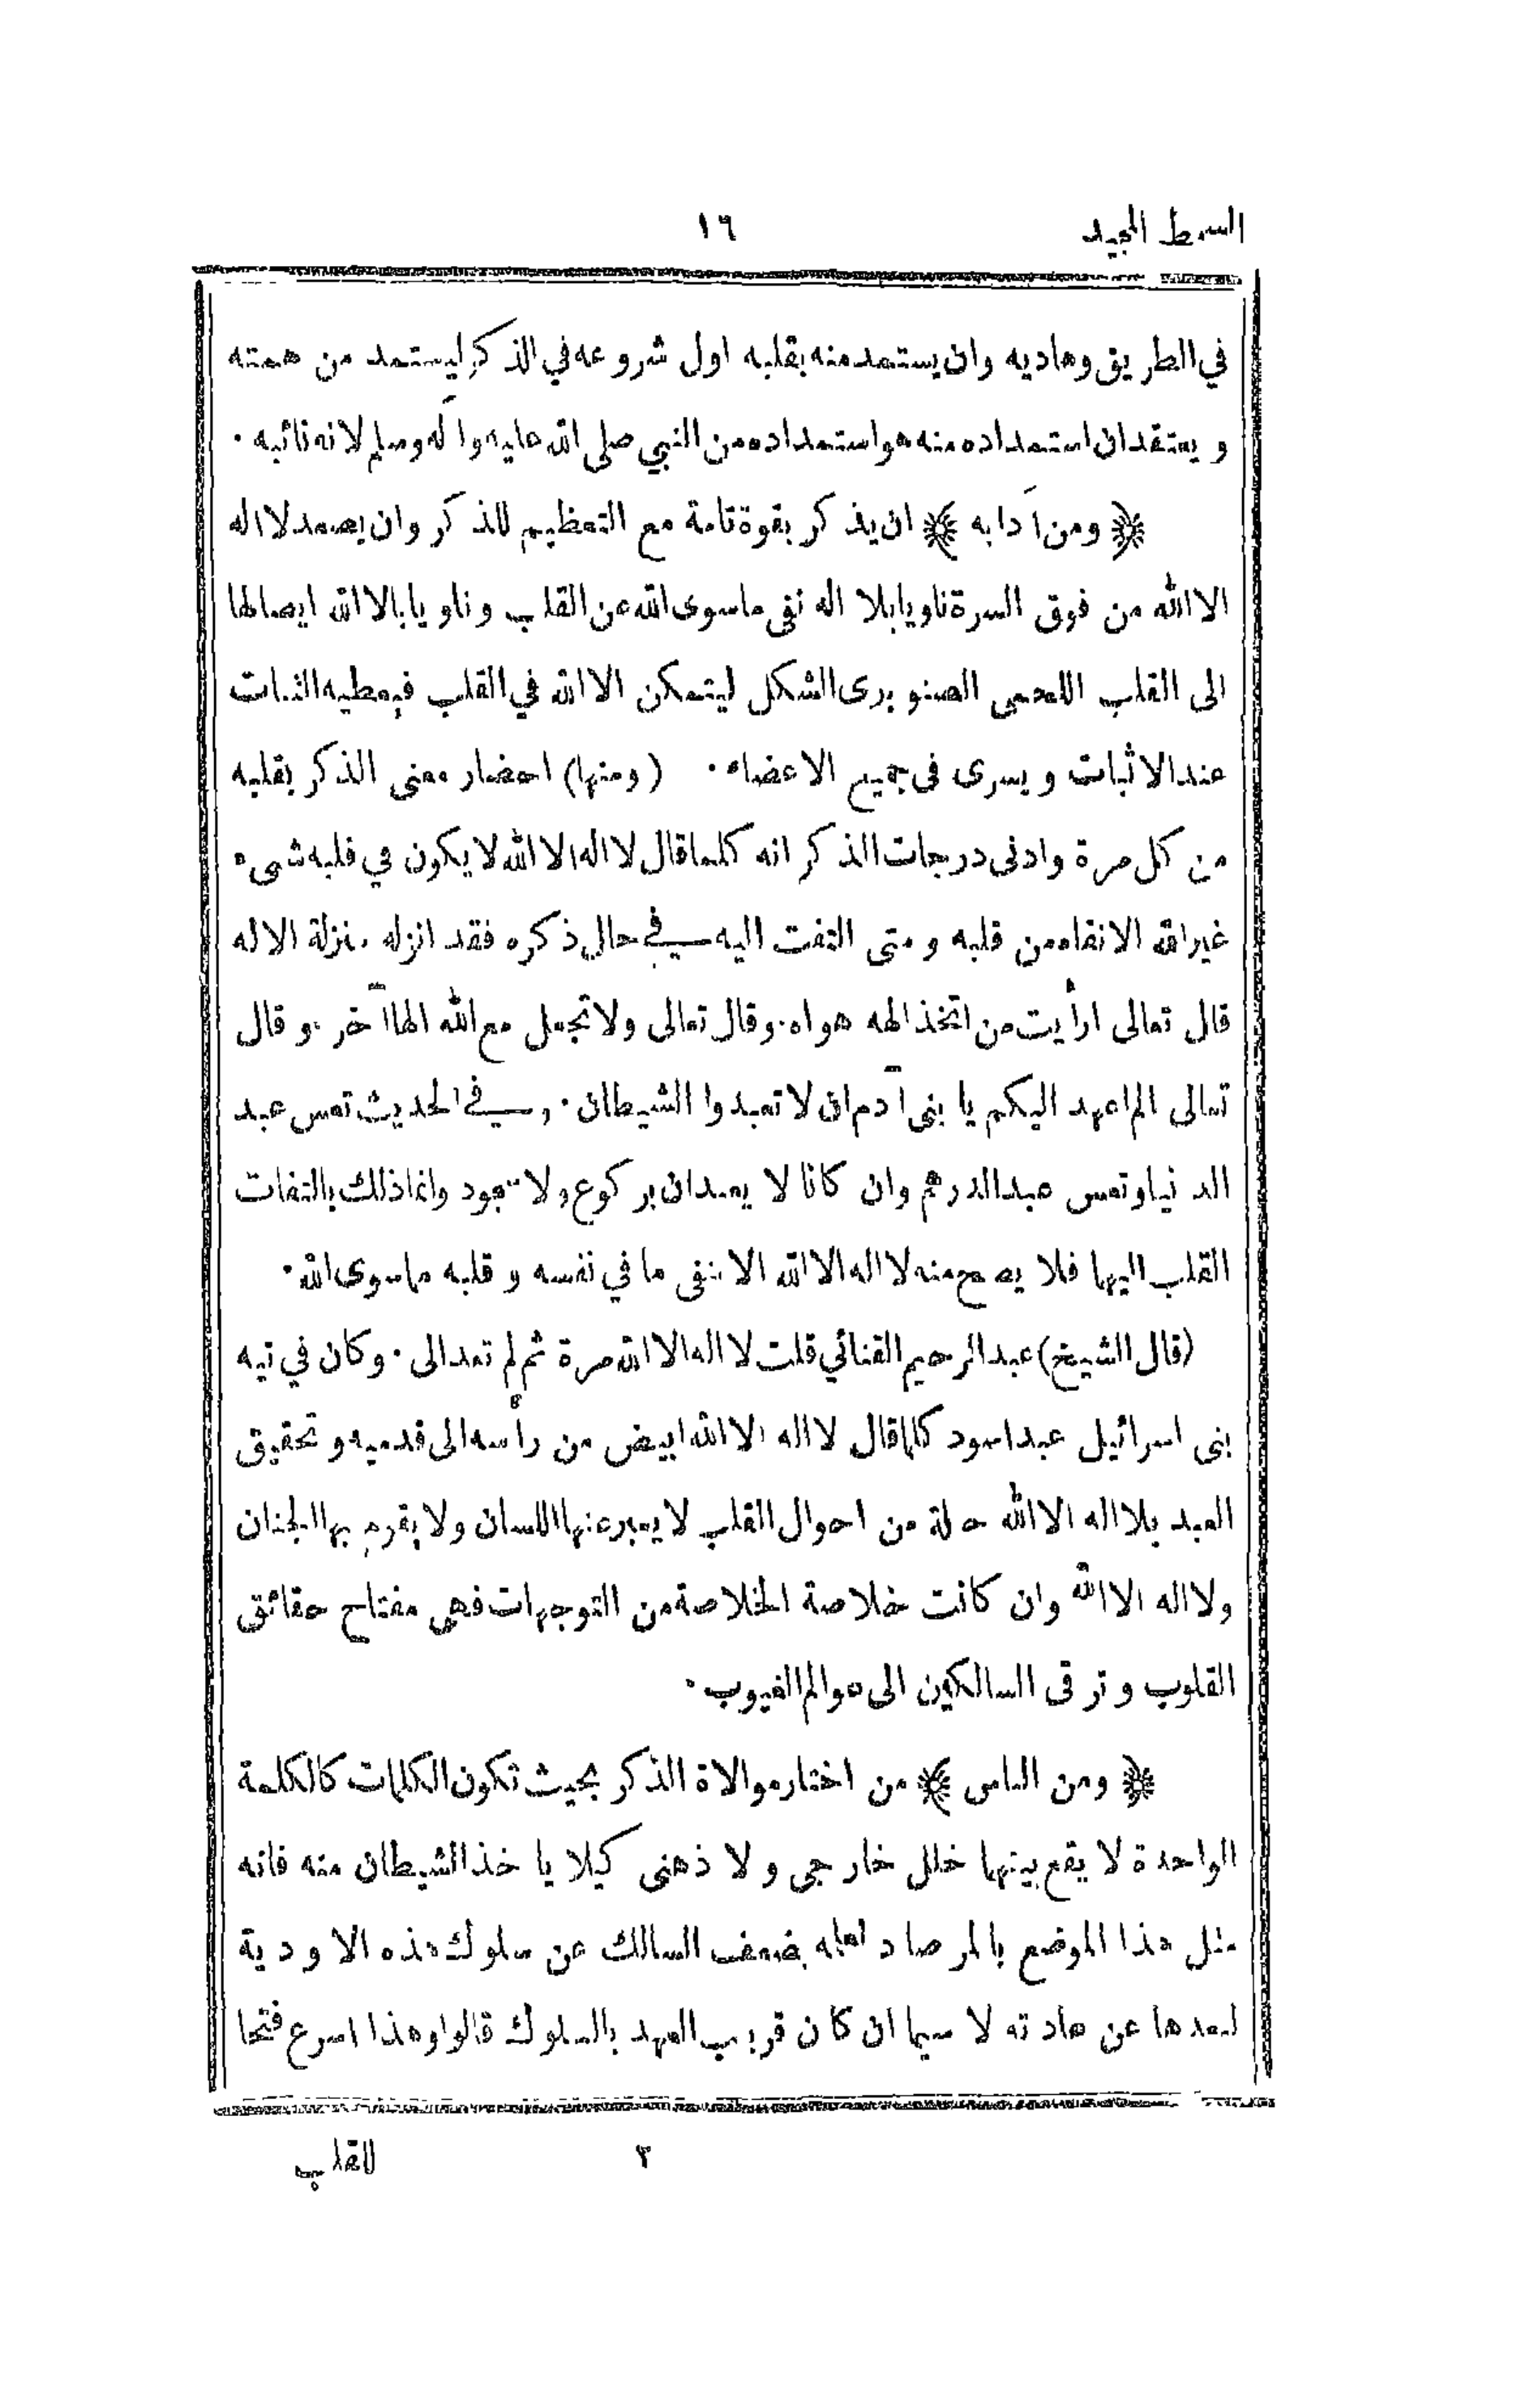 السمط المجيد
١٦
في الطريق وهاديه وان يستمد منه بقلبه اول شروعه في الذكر ليستمد من همته
ويعتقد ان استمداده منه هو استمداده من النبي صلى الله عليه وآله وسلم لانه نائبه ٠
﴿ ومن آدابه ﴾ ان يذكر بقوة تامة مع التعظيم للذكر وان يصعد لا اله
الا الله من فوق السرة ناويا بلا اله نفي ما سوى الله عن القلب وناويا بالا الله ايصالها
الى القلب اللحمى الصنوبرى الشكل ليتمكن الا الله في القلب فيعطيه الثبات
عند الاثبات ويسرى فى جميع الاعضاء ٠ (ومنها) احضار معنى الذكر بقلبه
من كل مرة وادنى درجات الذكر انه كلما قال لا اله الا الله لا يكون في قلبه شىء
غير الله الا نفاه من قلبه ومتى التفت اليه في حال ذكره فقد انزله منزلة الاله
قال تعالى ارأيت من اتخذ الهه هواه ٠ وقال تعالى ولا تجعل مع الله الها آخر ٠ وقال
تعالى الم اعهد اليكم يا بنى آدم ان لا تعبدوا الشيطان ٠ وفي الحديث تعس عبد
الدنيا وتعس عبد الدرهم وان كانا لا يعبدان بركوع ولا سجود وانما ذلك بالتفات
القلب اليها فلا يصح منه لا اله الا الله الا بنفى ما في نفسه وقلبه مما سوى الله ٠
(قال الشيخ) عبد الرحيم القنائي قلت لا اله الا الله مرة ثم لم تعد الى ٠ وكان في تيه
بنى اسرائيل عبد اسود كلما قال لا اله الا الله ابيض من رأسه الى قدميه وتحقيق
العبد بلا اله الا الله حالة من احوال القلب لا يعبر عنها اللسان ولا يقوم بها الجنان
ولا اله الا الله وان كانت خلاصة الخلاصة من التوجهات فهى مفتاح حقائق
القلوب وترقى السالكين الى عوالم الغيوب ٠
﴿ ومن الناس ﴾ من اختار موالاة الذكر بحيث تكون الكلمات كالكلمة
الواحدة لا يقع بينها خلل خارجى ولا ذهنى كيلا ياخذ الشيطان منه فانه
مثل هذا الموضع بالمرصاد لعلمه بضعف السالك عن سلوك هذه الاودية
لبعدها عن عادته لا سيما ان كان قريب العهد بالسلوك قالوا وهذا اسرع فتحا
٢
للقلب